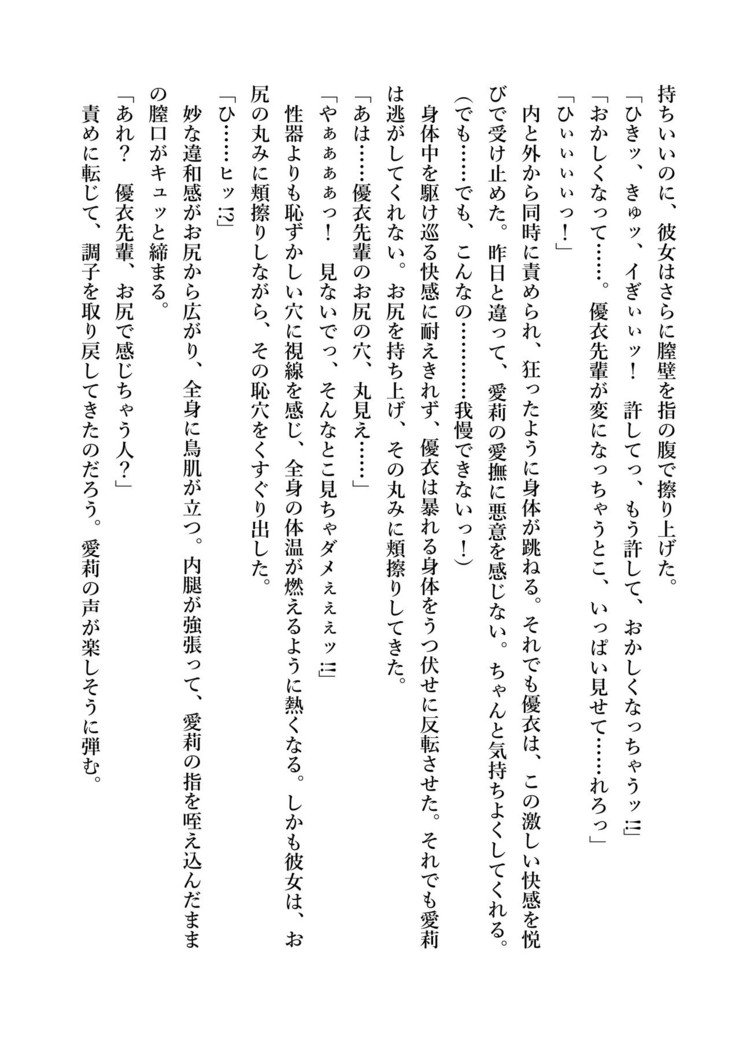 持ちいいのに、彼女はさらに膣壁を指の腹で擦り上げた。
「ひきッ、きゅッ、イぎぃぃッ！　許してっ、もう許して、おかしくなっちゃうッ!!」
「おかしくなって……。優衣先輩が変になっちゃうとこ、いっぱい見せて……れろっ」
「ひぃぃぃぃっ！」
　内と外から同時に責められ、狂ったように身体が跳ねる。それでも優衣は、この激しい快感を悦
びで受け止めた。昨日と違って、愛莉の愛撫に悪意を感じない。ちゃんと気持ちよくしてくれる。
（でも……でも、こんなの…………我慢できないっ！）
　身体中を駆け巡る快感に耐えきれず、優衣は暴れる身体をうつ伏せに反転させた。それでも愛莉
は逃がしてくれない。お尻を持ち上げ、その丸みに頬擦りしてきた。
「あは……優衣先輩のお尻の穴、丸見え……」
「やぁぁぁぁっ！　見ないでっ、そんなとこ見ちゃダメぇぇぇッ!!」
　性器よりも恥ずかしい穴に視線を感じ、全身の体温が燃えるように熱くなる。しかも彼女は、お
尻の丸みに頬擦りしながら、その恥穴をくすぐり出した。
「ひ……ヒッ!?」
　妙な違和感がお尻から広がり、全身に鳥肌が立つ。内腿が強張って、愛莉の指を咥え込んだまま
の膣口がキュッと締まる。
「あれ？　優衣先輩、お尻で感じちゃう人？」
　責めに転じて、調子を取り戻してきたのだろう。愛莉の声が楽しそうに弾む。